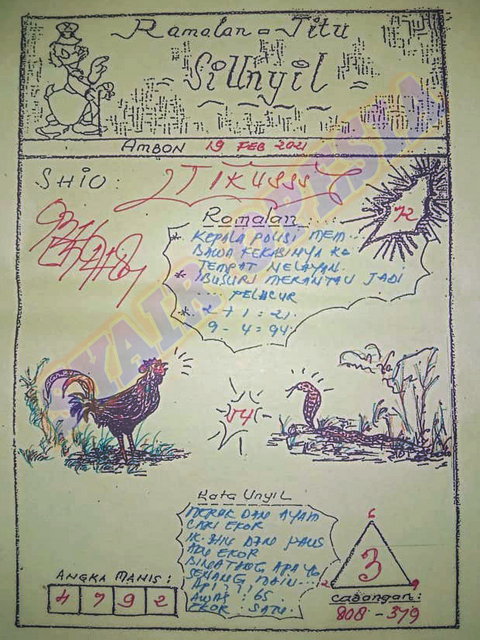 Ramalan = Jitu
SiUnyil
AMBON 19 FEB 2021
SHIO: TIKUSSS
Ramalan.....
* KEPALA POLISI MEM-
BAWA KE
TEMPAT NELAYAN.
* MERANTAU JADI
.... PELACUR
* 2 + 1 : 21.
9 - 4 = 94.
SYAIR
Kata Unyil
MERAK DAN AYAM
CARI EKOR
DAN PAUS
ADU EKOR
BINATANG APA YG
SENANG MAIN...
API!!
AWAS: 65.
EKOR: SATU.
ANGKA MANIS:
4 7 9 2
6
3
2
9
cabangan:
808 - 379